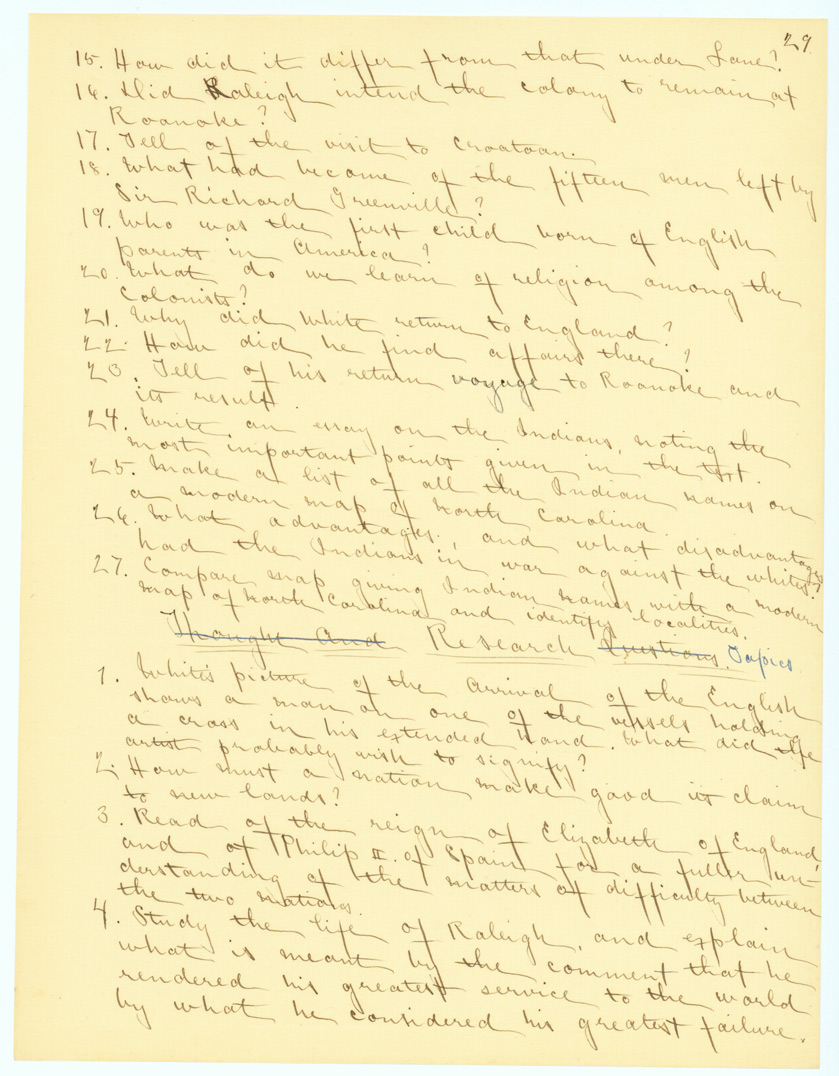 29
15. How did it differ from that under Lane?
16. Did Raleigh intend the colony to remain at
Roanoke?
17. Tell of the visit to Croatoan.
18. What had become of the fifteen men left by
Sir Richard Greenville?
19. Who was the first child born of English
parents in America?
20. What do we learn of religion among the
colonists?
21. Why did White return to England?
22. How did he find affairs there?
23. Tell of his return voyage to Roanoke and
its result.
24. Write an essay on the Indians, noting the
most important points given in the text.
25. Make a list of all the Indian names on
a modern map of North Carolina.
26. What advantages, and what disadvantages
had the Indians in war against the whites?
27. Compare map giving Indian names with a modern
map of North Carolina and identify localities.
Thought and Research Questions. Topics
1. White's picture of the arrival of the English
shows a man on one of the vessels holding
a cross in his extended hand. What did the
artist probably wish to signify?
2. How must a nation make good its claim
to new lands?
3. Read of the reign of Elizabeth of England,
and of Philip II. of Spain for a fuller un-
derstanding of the matters of difficulty between
the two nations.
4. Study the life of Raleigh, and explain
what is meant by the comment that he
rendered his greatest service to the world
by what he considered his greatest failure.